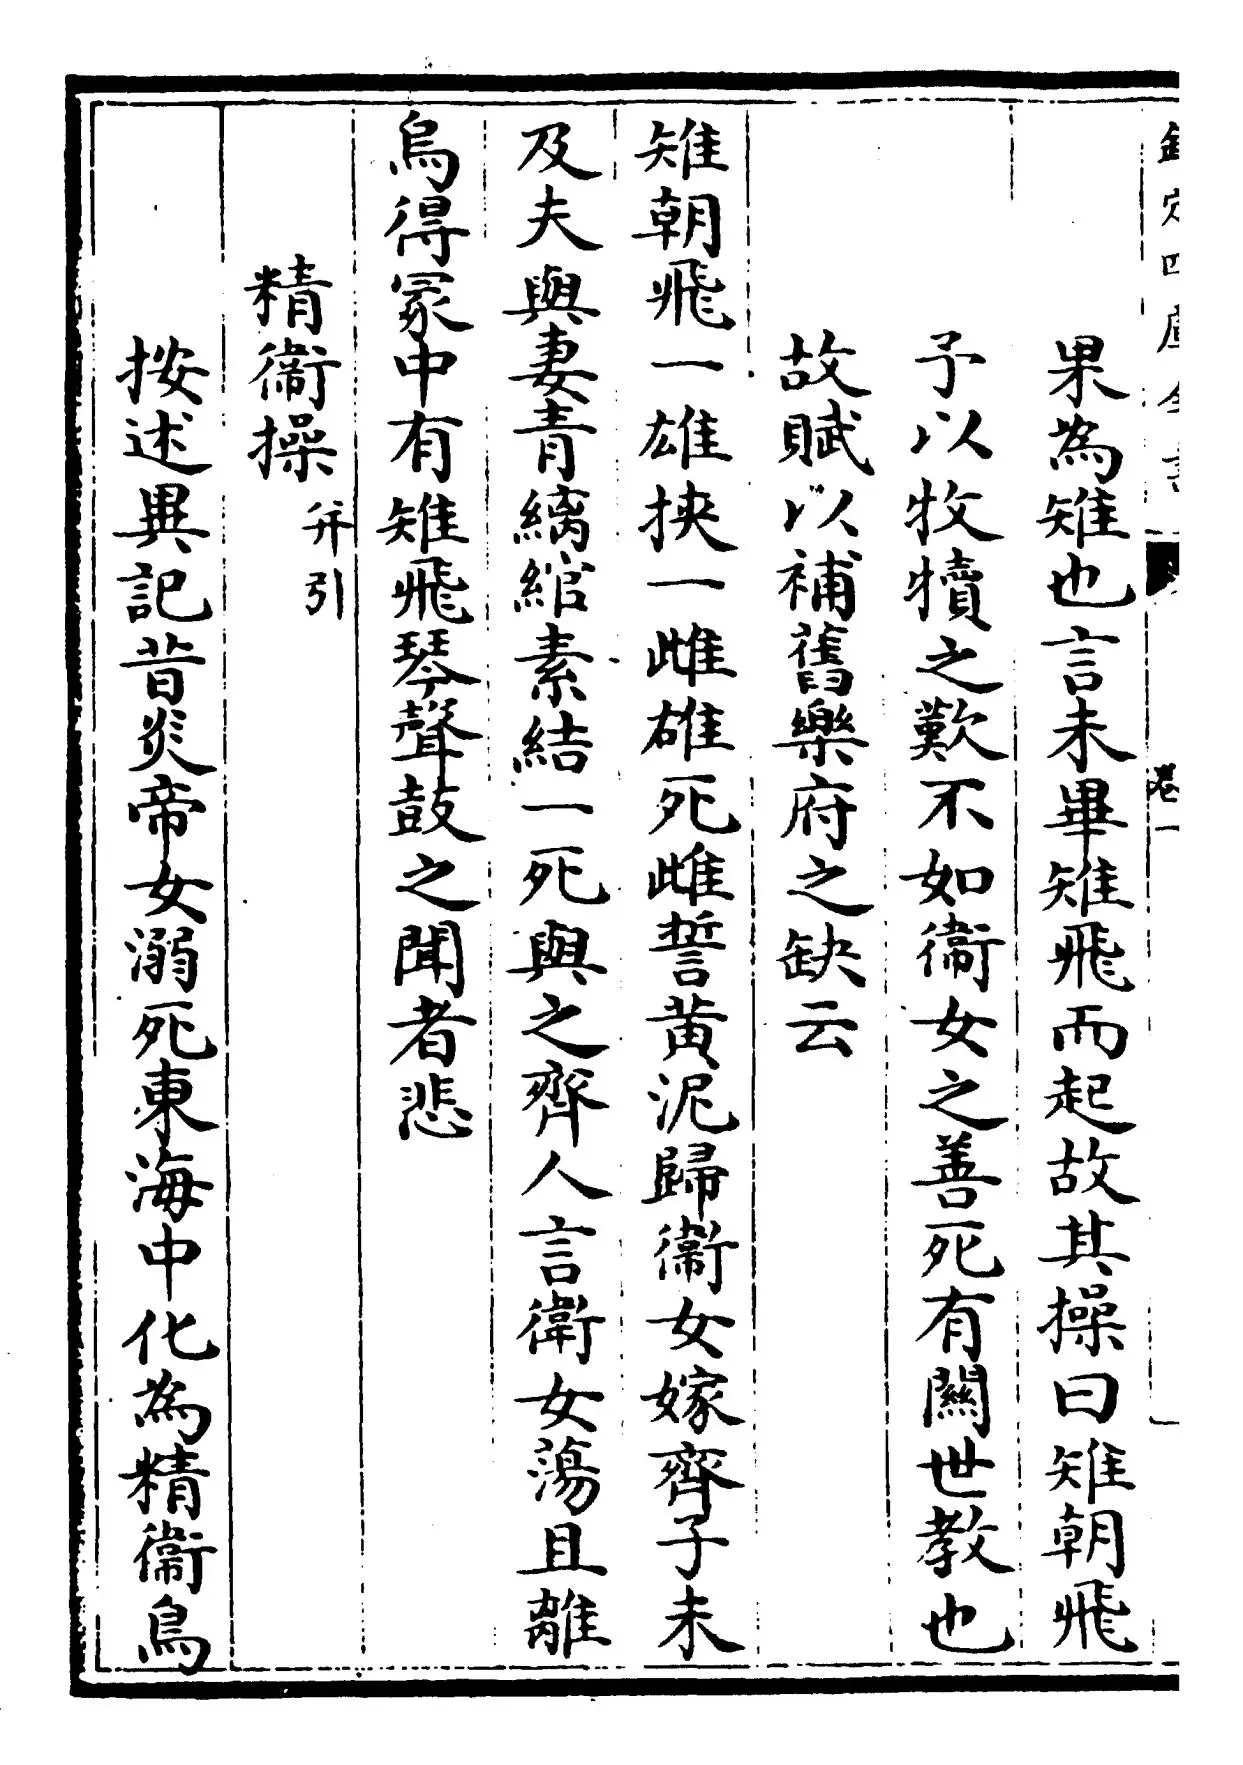 欽定四庫全書
卷一
果為雉也言未畢雉飛而起故其操曰雉朝飛
予以牧犢之歎不如衞女之善死有闗世教也
故賦以補舊樂府之缺云
雉朝飛一雄挾一雌雄死雌誓黄泥歸衞女嫁齊子未
及夫與妻青縭綰素結一死與之齊人言衛女蕩且離
烏得冢中有雉飛琴聲鼓之聞者悲
精衞操
并引
按述異記昔炎帝女溺死東海中化為精衞鳥